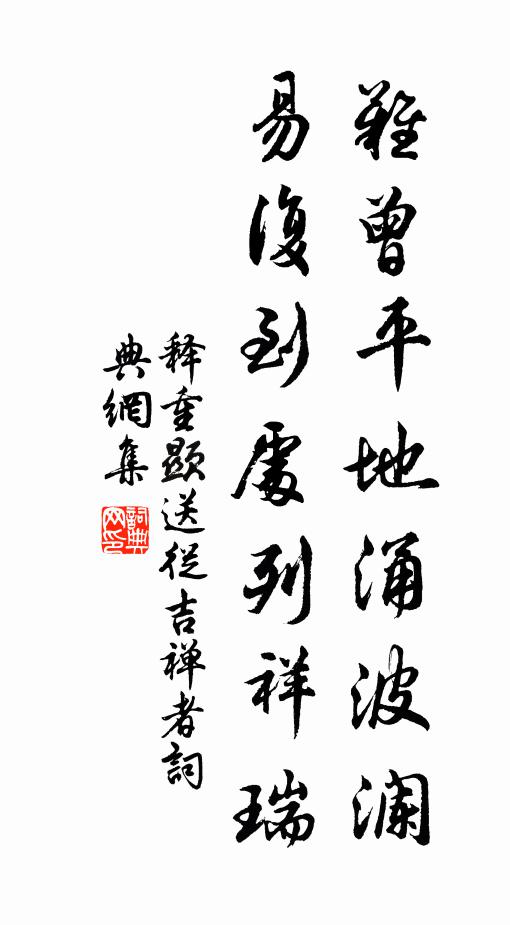 難曾平地涌波瀾
易復到處列祥瑞
释重顯送從吉禅者詞
典網集
詞典網印